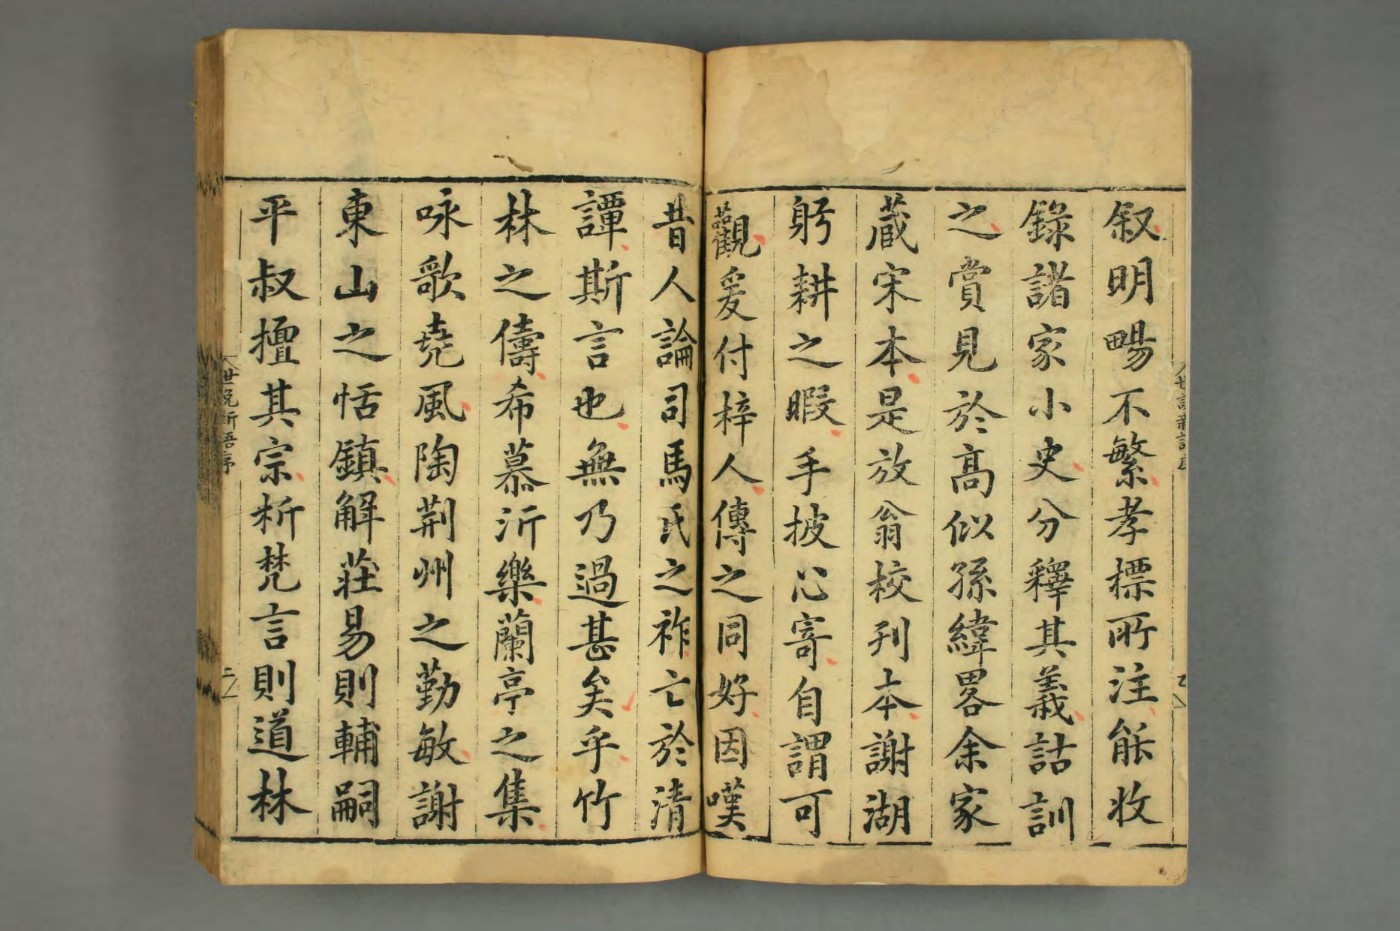 叙明暢不繁孝標所注能收
錄諸家小史分釋其義詁訓
之賞見於高似孫緯畧余家
藏宋本是放翁校刊本謝湖
躬耕之暇手披心寄自謂可
觀爰付梓人傳之同好因嘆
昔人論司馬氏之祚亡於清
譚斯言也無乃過甚矣乎竹
林之儔希慕沂樂蘭亭之集
咏歌堯風陶荆州之勤敏謝
東山之恬鎮解莊易則輔嗣
平叔擅其宗析梵言則道林
世説新語序
二